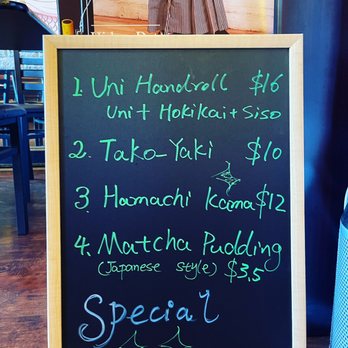 1. Uni Handroll $16
Uni + Hokikai + Siso
2. Tako-Yaki $10
3 Hamachi Kama $12
4. Matcha Pudding
(Japanese style) $3.5
Special